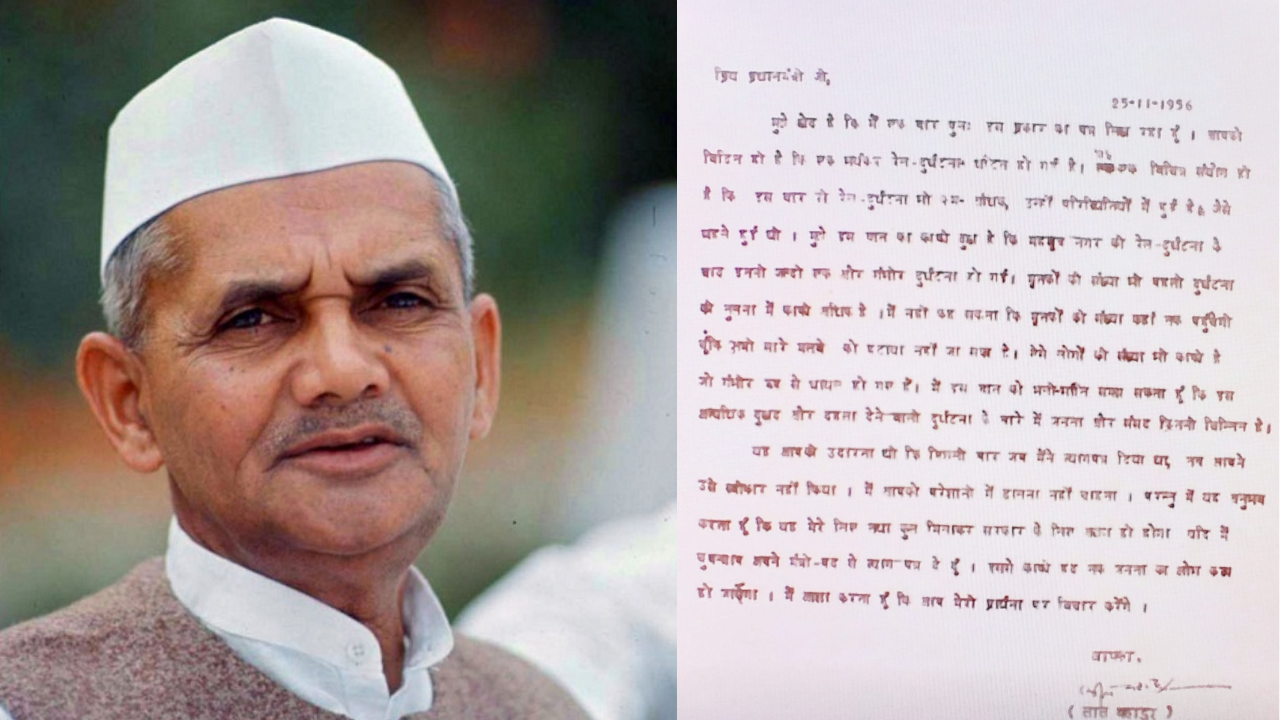 प्रिय प्रधानमंत्री जी,
25-11-1956
मुझे खेद है कि मैं एक बार पुनः इस प्रकार का पत्र लिख रहा हूँ । आपको
विदित हो है कि एक भयंकर रेल-दुर्घटना घटित हो गई है। यह एक विचित्र संयोग ही
है कि इस बार रेल-दुर्घटना भी उन्हीं परिस्थितियों में हुई है, जैसे
पहले हुई थी । मुझे इस बात का काफी दुख है कि महबूब नगर की रेल-दुर्घटना के
बाद इतनी जल्दी एक और गंभीर दुर्घटना हो गई। मृतकों की संख्या भी पहली दुर्घटना
की तुलना में काफी अधिक है । मैं नहीं कह सकता कि मृतकों की संख्या कहाँ तक पहुँचेगी
चूँकि अभी सारे मलबे को हटाया नहीं जा सका है। ऐसे लोगों की संख्या भी काफी है
जो गंभीर रूप से घायल हो गए हैं। मैं इस बात को भली-भाँति समझ सकता हूँ कि इस
अत्यधिक दुखद और दहला देने वाली दुर्घटना के बारे में जनता और संसद कितनी चिन्तित है।
यह आपकी उदारता थी कि पिछली बार जब मैंने त्यागपत्र दिया था, तब आपने
उसे स्वीकार नहीं किया । मैं आपको परेशानी में डालना नहीं चाहता । परन्तु मैं यह अनुभव
करता हूँ कि यह मेरे लिए तथा कुल मिलाकर सरकार के लिए अच्छा ही होगा यदि मैं
चुपचाप अपने मंत्री-पद से त्याग-पत्र दे दूँ । इससे काफी हद तक जनता का क्षोभ कम
हो जाएगा । मैं आशा करता हूँ कि आप मेरी प्रार्थना पर विचार करेंगे ।
आपका,